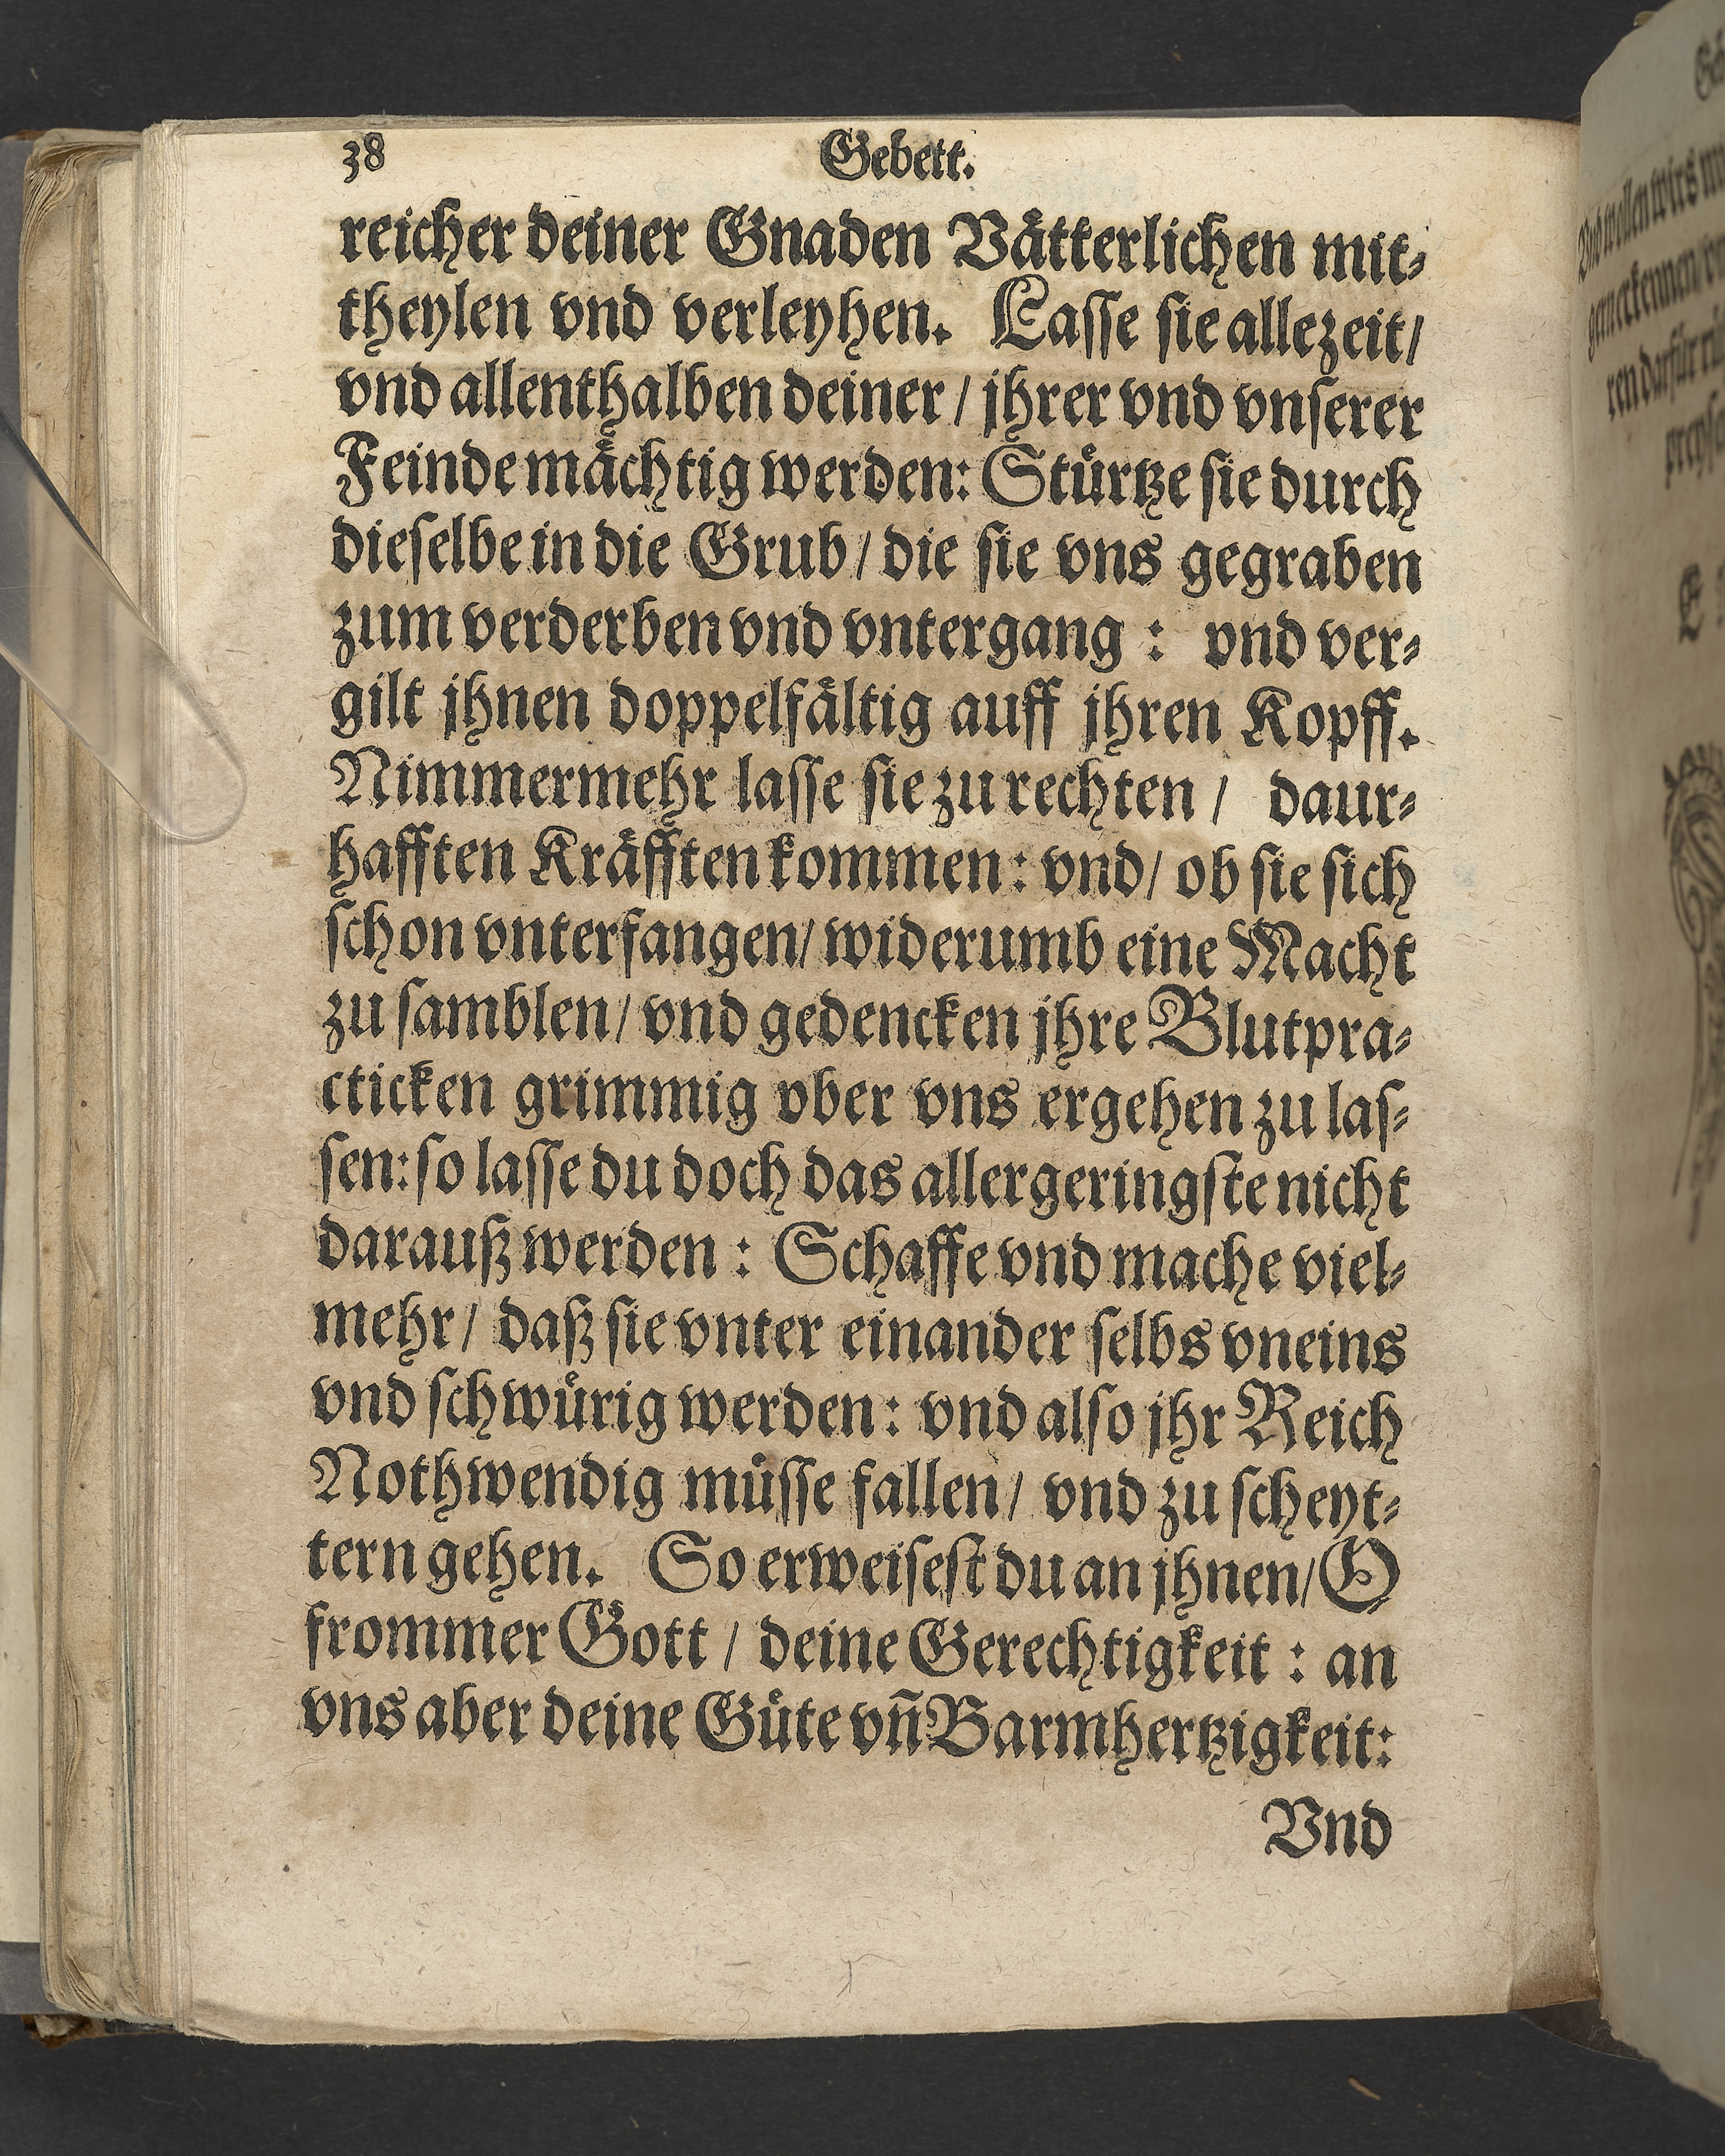 38 Gebett.
reicher deiner Gnaden Vaͤtterlichen mit⸗
theylen vnd verleyhen. Lasse sie allezeit/
vnd allenthalben deiner / jhrer vnd vnserer
Feinde maͤchtig werden: Stuͤrtze sie durch
dieselbe in die Grub / die sie vns gegraben
zum verderben vnd vntergang : vnd ver⸗
gilt jhnen doppelfaͤltig auff jhren Kopff.
Nimmermehr lasse sie zu rechten / daur⸗
hafften Kraͤfften kommen: vnd/ ob sie sich
schon vnterfangen/ widerumb eine Macht
zu samblen/ vnd gedencken jhre Blutpra⸗
cticken grimmig vber vns ergehen zu las⸗
sen: so lasse du doch das allergeringste nicht
darauß werden : Schaffe vnd mache viel⸗
mehr/ daß sie vnter einander selbs vneins
vnd schwuͤrig werden: vnd also jhr Reich
Nothwendig muͤsse fallen/ vnd zu scheyt⸗
tern gehen. So erweisest du an jhnen/ O
frommer Gott / deine Gerechtigkeit : an
vns aber deine Guͤte vn̄ Barmhertzigkeit:
Vnd